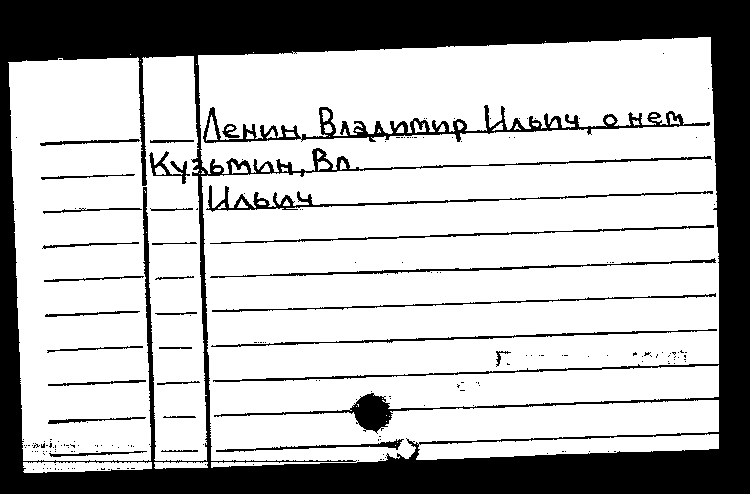 Ленин, Владимир Ильич, о нем
Кузьмин, Вл.
Ильич